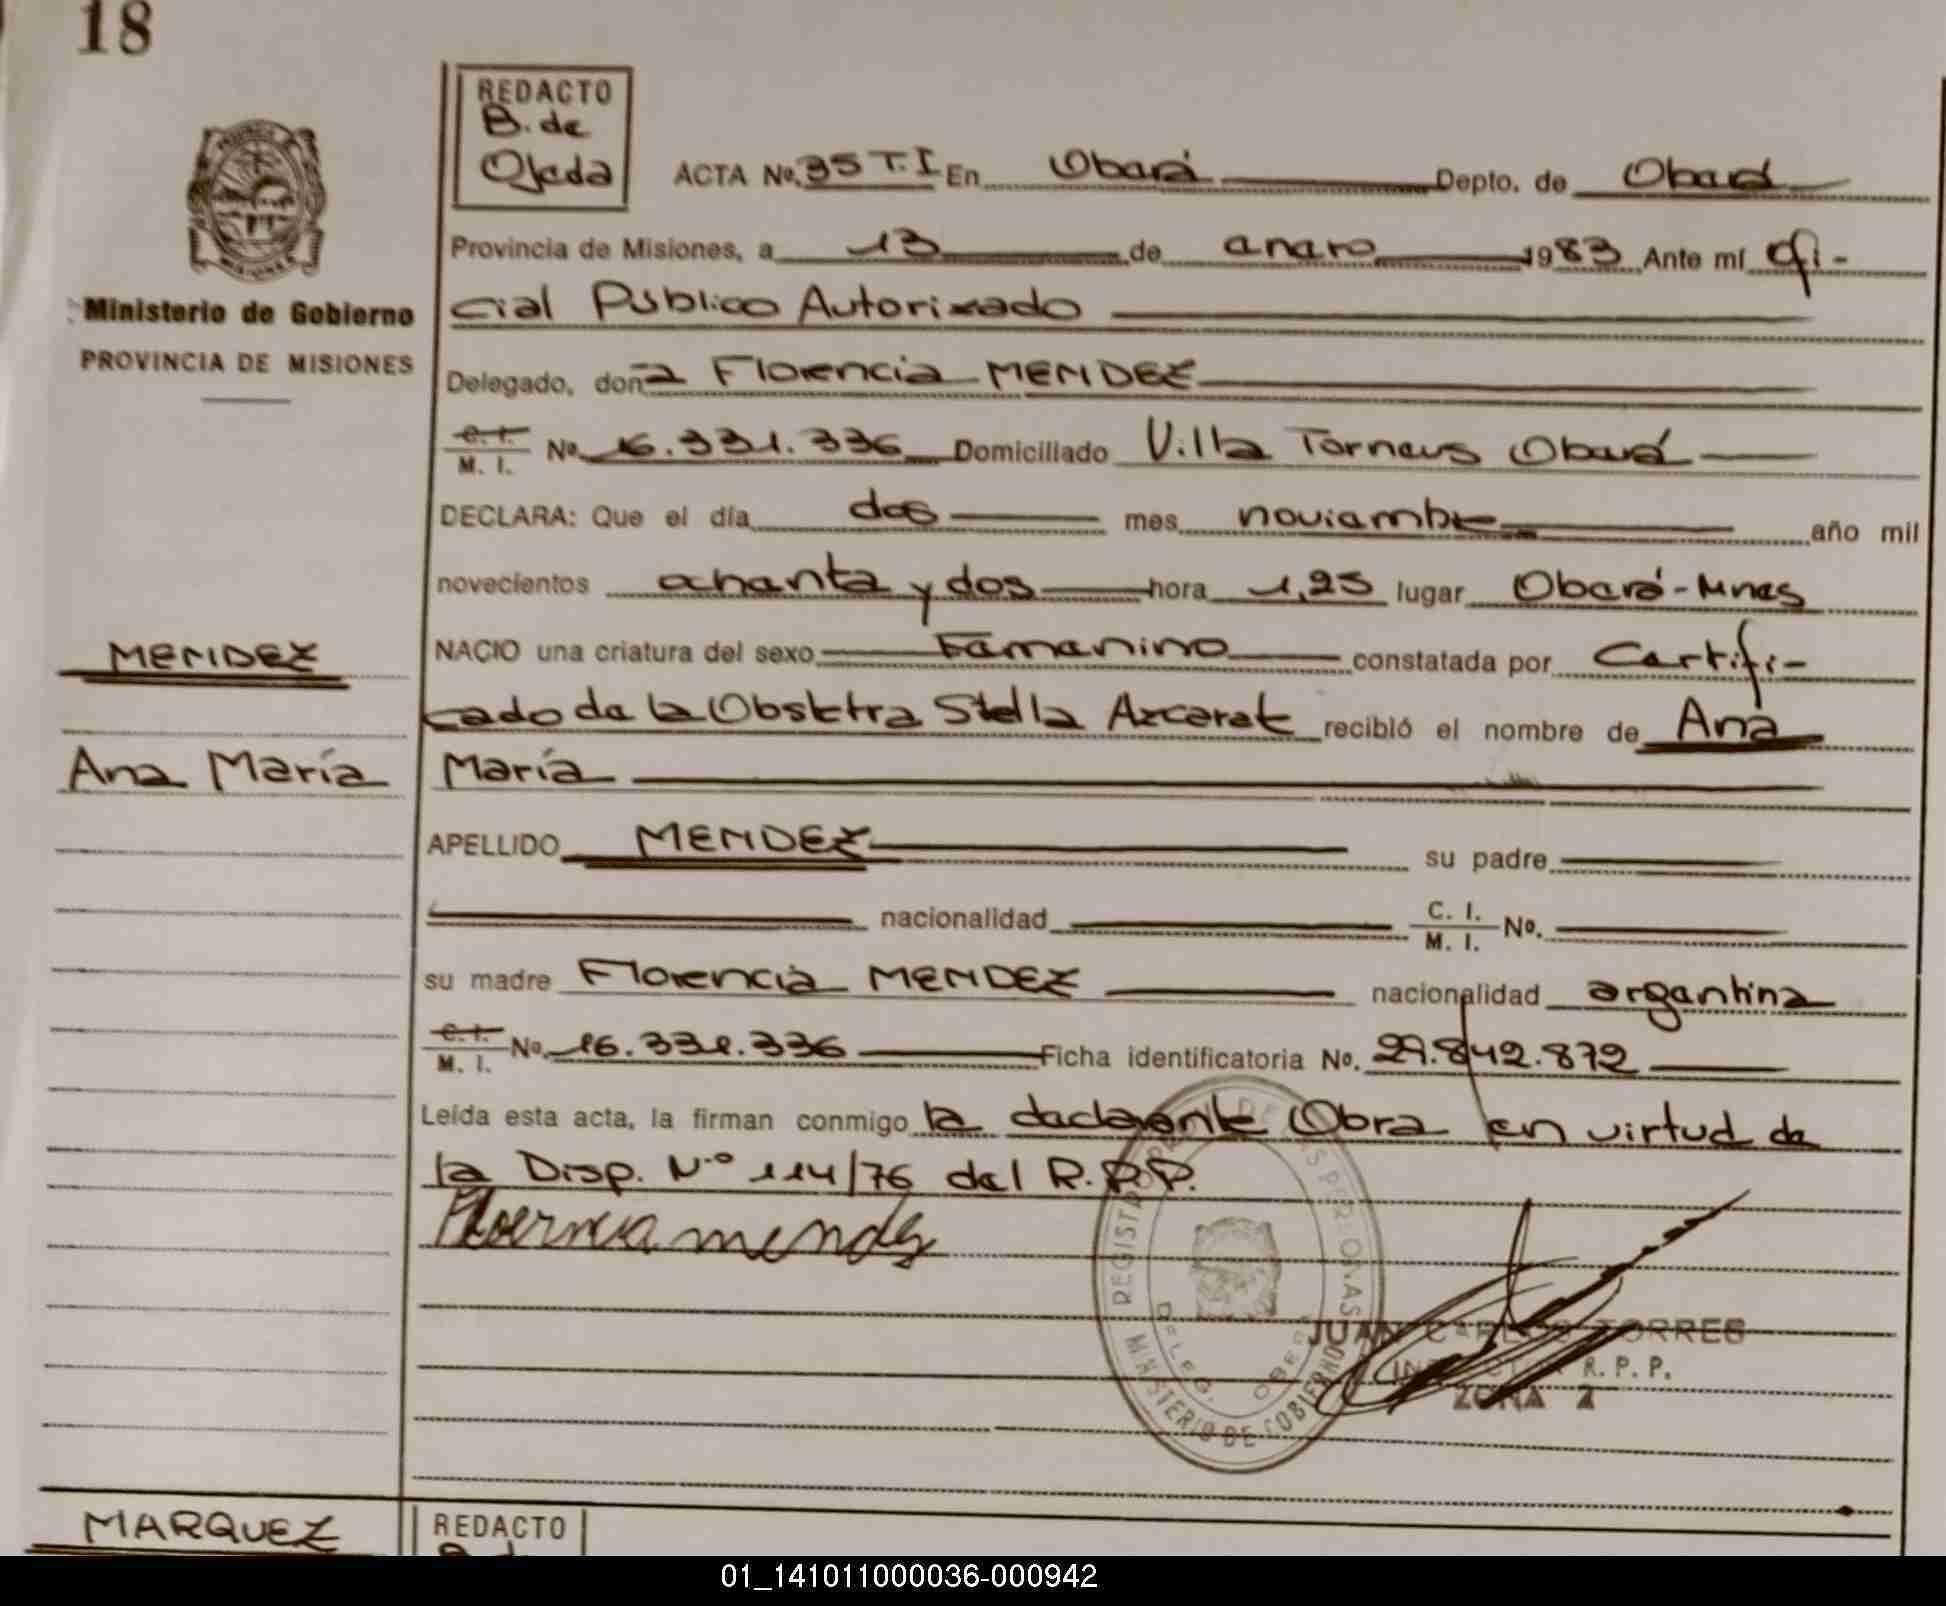 18
REDACTO
B. de
Ojeda
ACTA No. 35 T.I En Oberá Depto. de Oberá
Provincia de Misiones, a 13 de enero 1983 Ante mí Ofi-
cial Público Autorizado
Ministerio de Gobierno
PROVINCIA DE MISIONES
Delegado, don a Florencia MENDEZ
C. I.
M. I. No. 16.331.336 Domiciliado Villa Torneus Oberá
DECLARA: Que el día dos mes noviembre año mil
novecientos ochenta y dos hora 1,25 lugar Oberá-Mnes
NACIO una criatura del sexo Femenino constatada por Certifi-
cado de la Obstetra Stella Azcarate recibió el nombre de Ana
María
MENDEZ
Ana María
APELLIDO MENDEZ su padre
nacionalidad C. I.
M. I. No.
su madre Florencia MENDEZ nacionalidad argentina
C. I.
M. I. No. 16.331.336 Ficha identificatoria No. 29.842.872
Leída esta acta, la firman conmigo la declarante Obra en virtud de
la Disp. N.º 114/76 del R.P.P.
Florencia mendez
REGISTRO DE LAS PERSONAS
DELEG. OBERA
MINISTERIO DE GOBIERNO
JUAN CARLOS TORRES
R. P. P.
ZONA 2
MARQUEZ
REDACTO
01_141011000036-000942